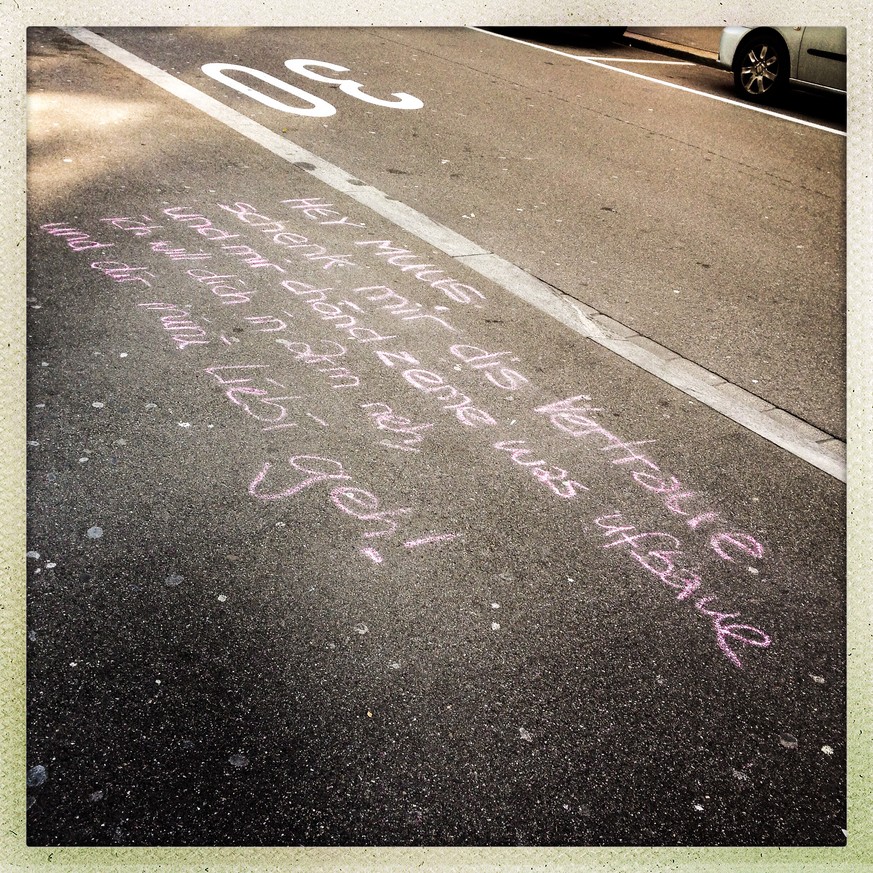 30
HEY MUUS,
schenk mir dis Vertraue
und mir chönd zeme was ufbaue
ich will dich in Arm neh
und dir mini Liebi geh!